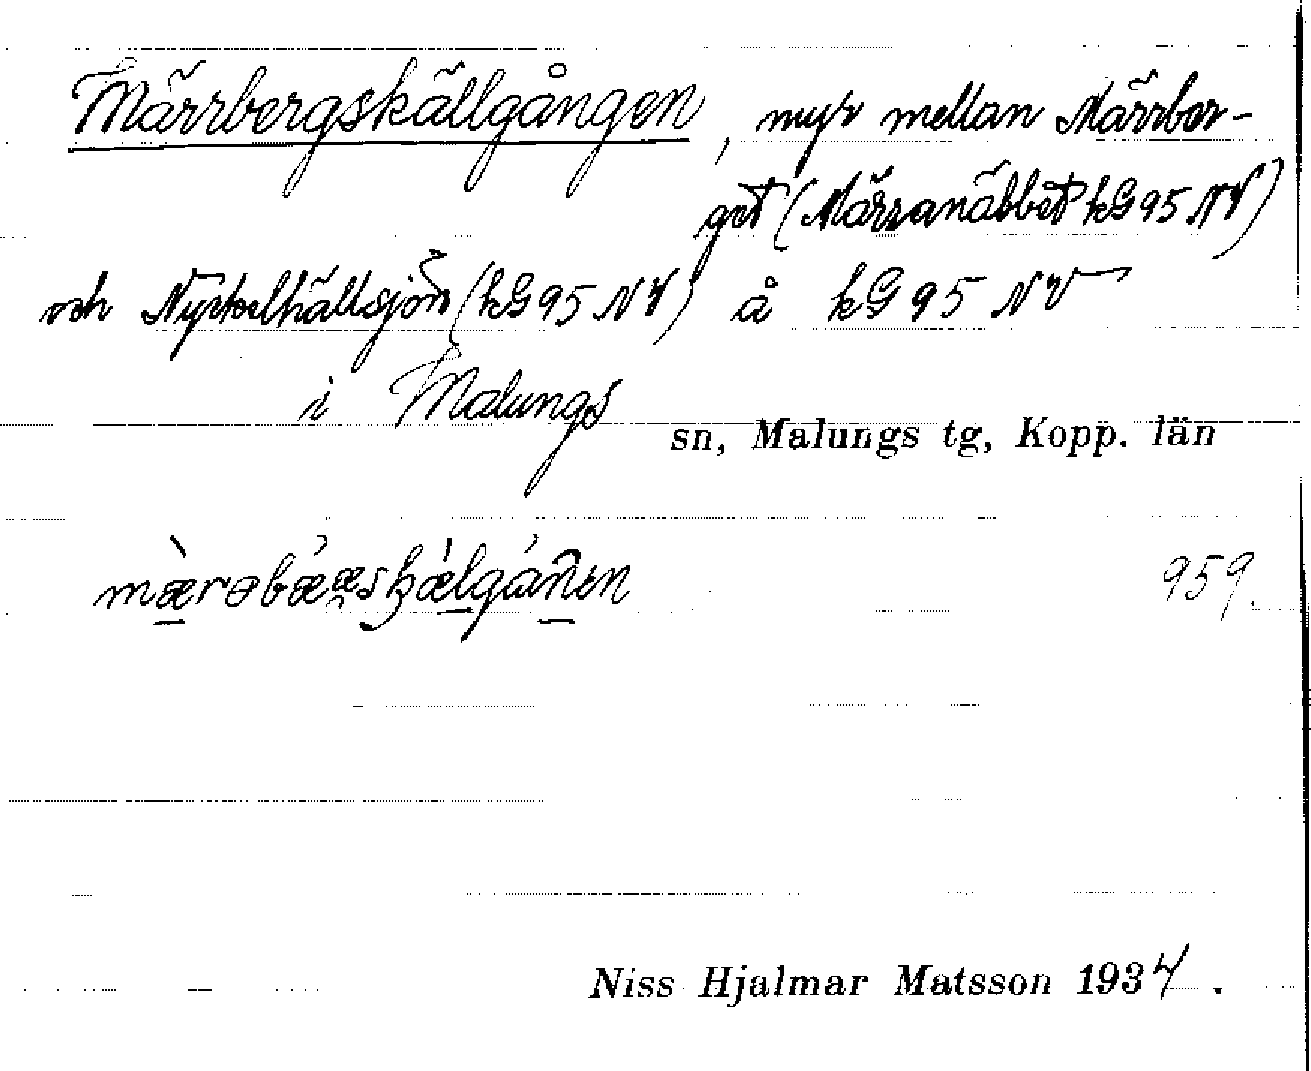 Märrbergskällgången, myr mellan Märrber-
get (Märranäbbet kG95NV)
och Nyckelhällsjön (kG95NV) å kG95NV
i Malungs sn, Malungs tg, Kopp. län
959.
Niss Hjalmar Matsson 1934.